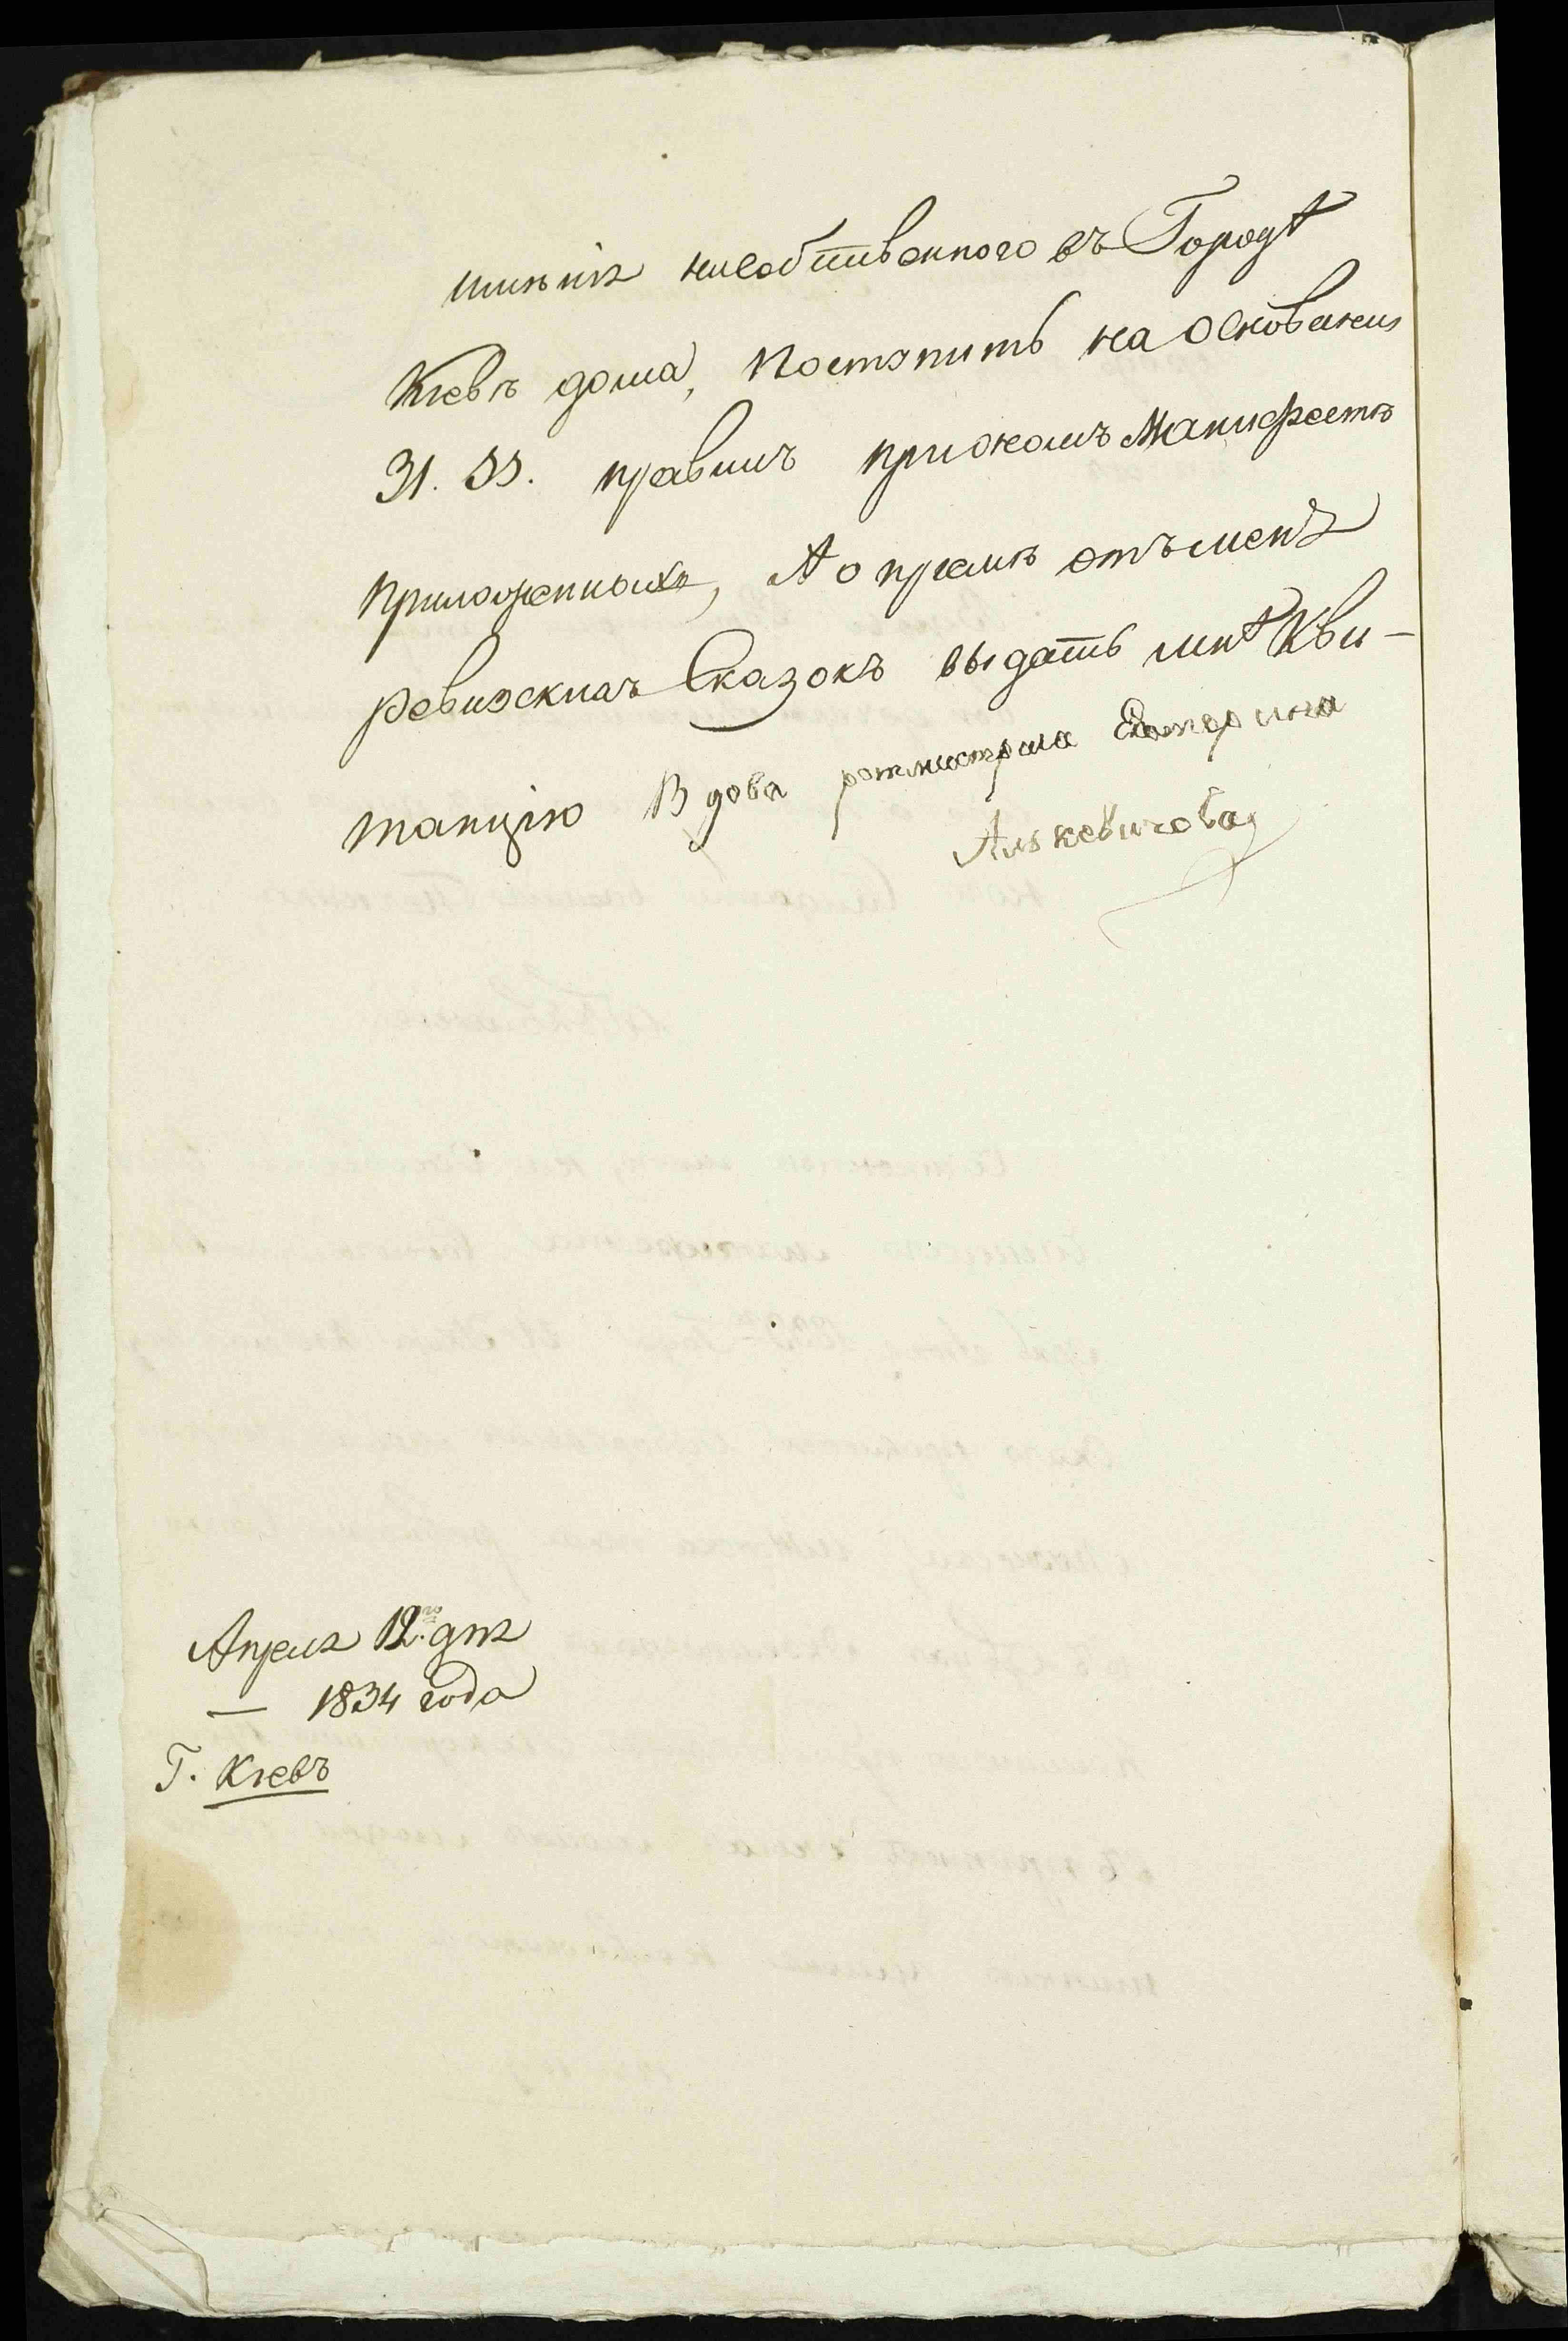 имѣнія ни собственного въ Городѣ
Кіевѣ дома, поступить на основаніи
31. §§. правилъ при ономъ Манифестѣ
приложенныхъ, А о пріемѣ отъ меня
ревизскихъ Сказокъ выдать мнѣ Кви-
танцію Вдова ротмистрша Екатерина
Апрѣля 12го дня
— 1834 года
Г. Кіевъ